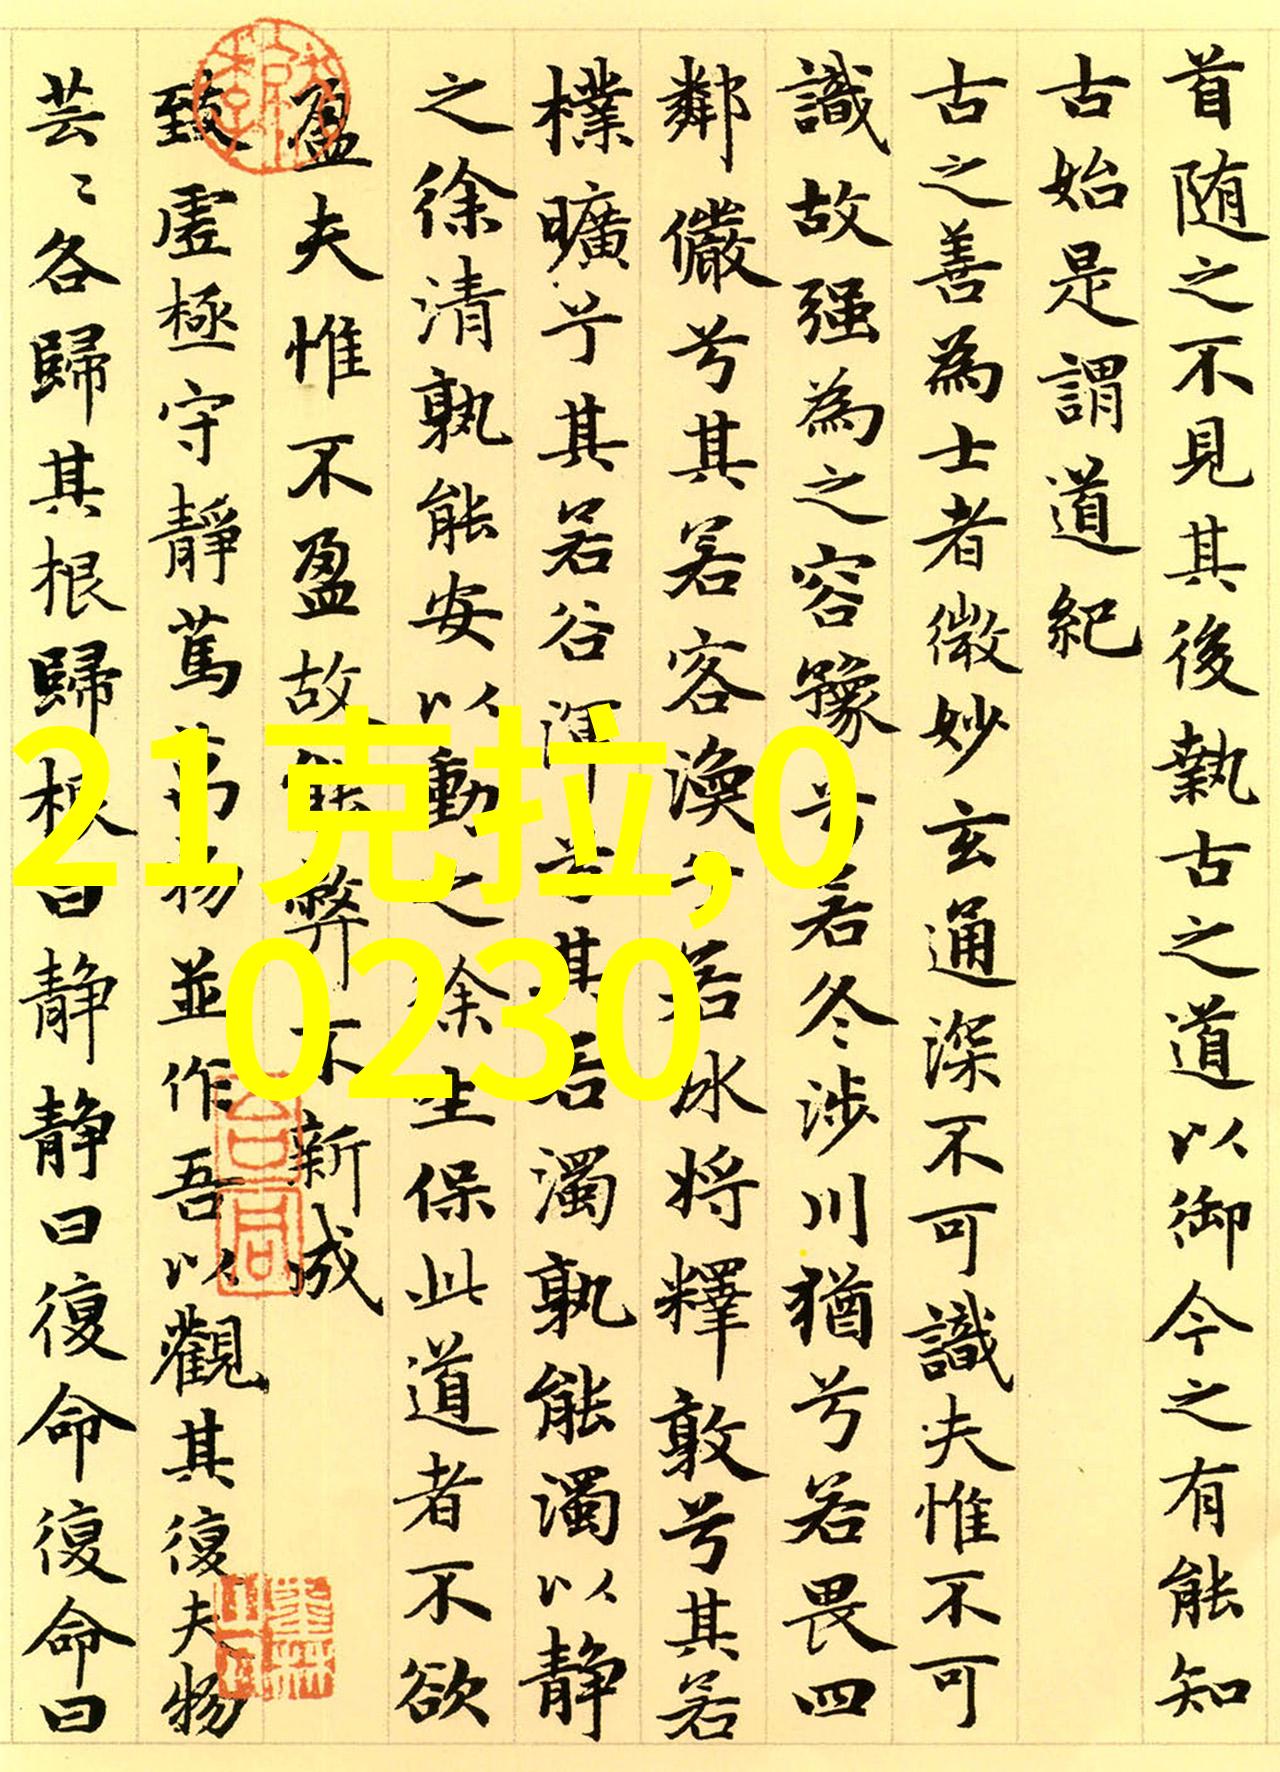 首随之不見其後執古之道以御今之有能知
古始是謂道紀
古之善為士者微妙玄通深不可識夫惟不可
識故强為之容豫兮若冬涉川猶兮若畏四
鄰儼兮其若客渙兮若冰将釋敦兮其若
樸曠兮其若谷渾兮其若濁孰能濁以静
之徐清孰能安以動之徐生保此道者不欲
盈夫惟不盈故能弊不新成
致虚極守靜篤萬物並作吾以觀其復夫物
芸〻各歸其根歸根曰静静曰復命復命曰
21克拉,0
0230